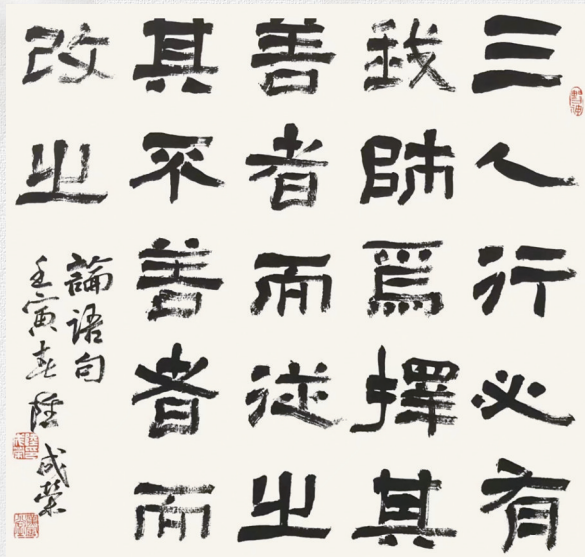 三人行必有
我師焉擇其
善者而從之
其不善者而
改之
論語句
壬寅春陸成榮